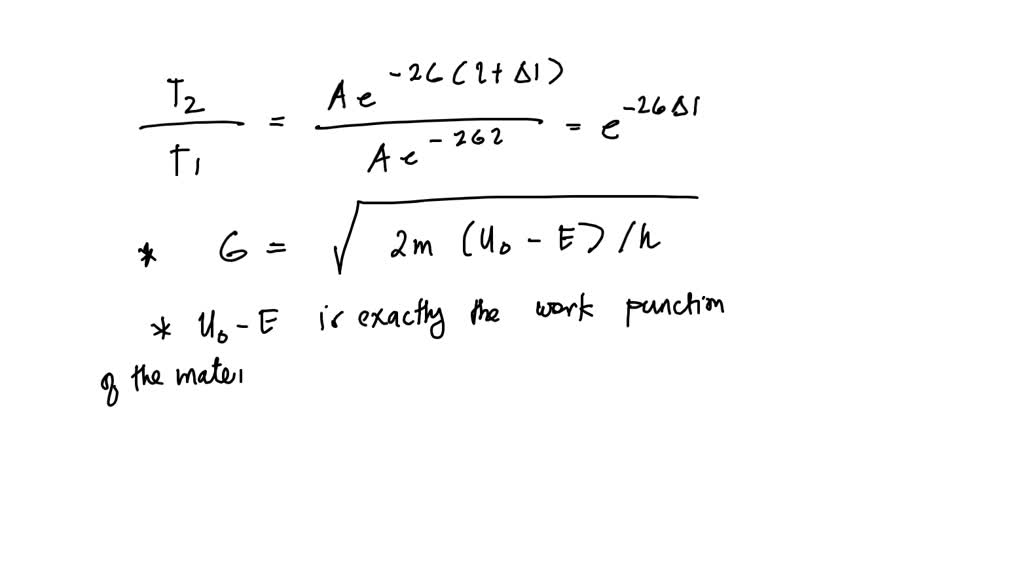 T2/T1 = Ae^-2G(2+Δ1) / Ae^-2G2 = e^-2GΔ1
* G = √2m (U0 - E)/h
* U0 - E is exactly the work punction
of the mater